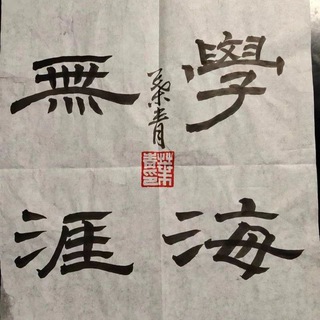 學海
無涯
葉青